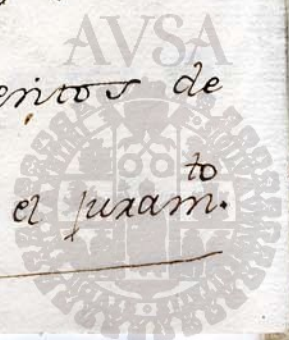 AVSA
entos de
el juram.to